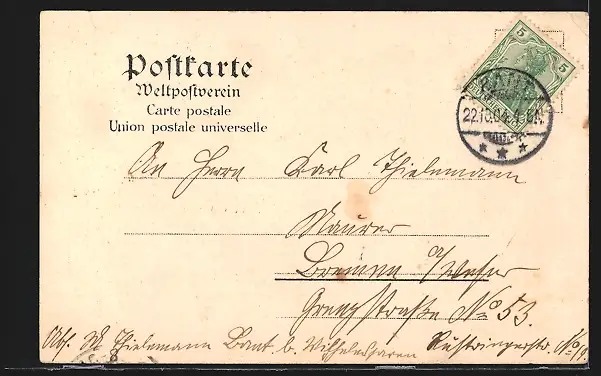 Postkarte
Weltpostverein
Carte postale
Union postale universelle
5 5
BANT
22.10.04.
An Herrn Karl Thielemann
Maurer
Bremen a/Weser
Grenzstraße No 53.
Abs. W Thielemann Bant b. Wilhelmshaven Rüstringerstr. No